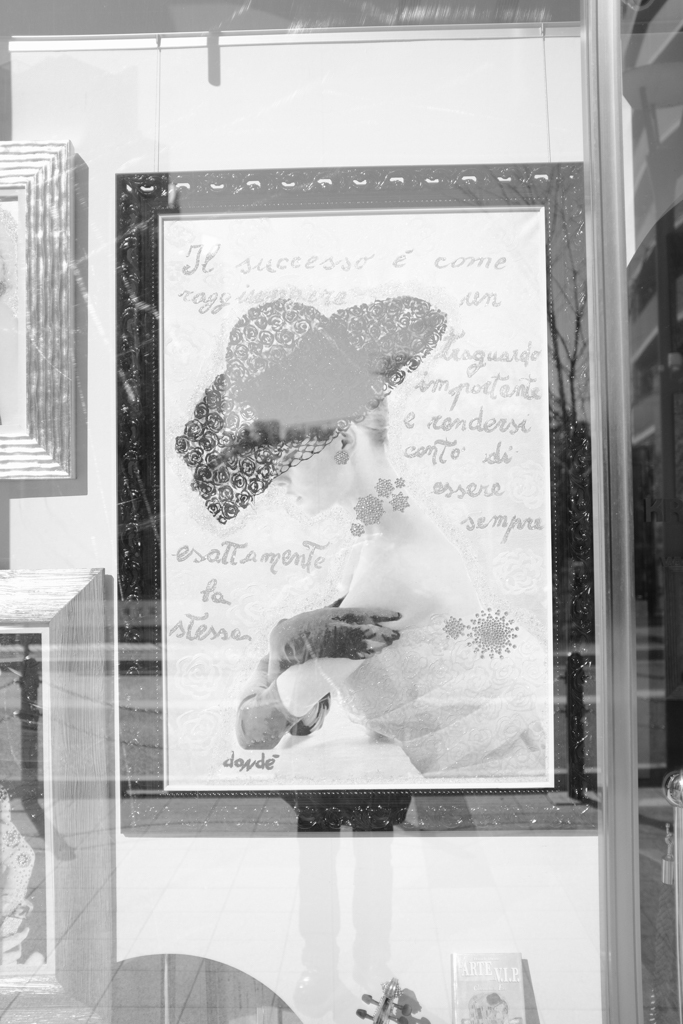 Il successo é come
raggiungere un
traguardo
importante
e rendersi
conto di
essere
sempre
esattamente
la
stessa
dondé
ARTE
V.I.P.